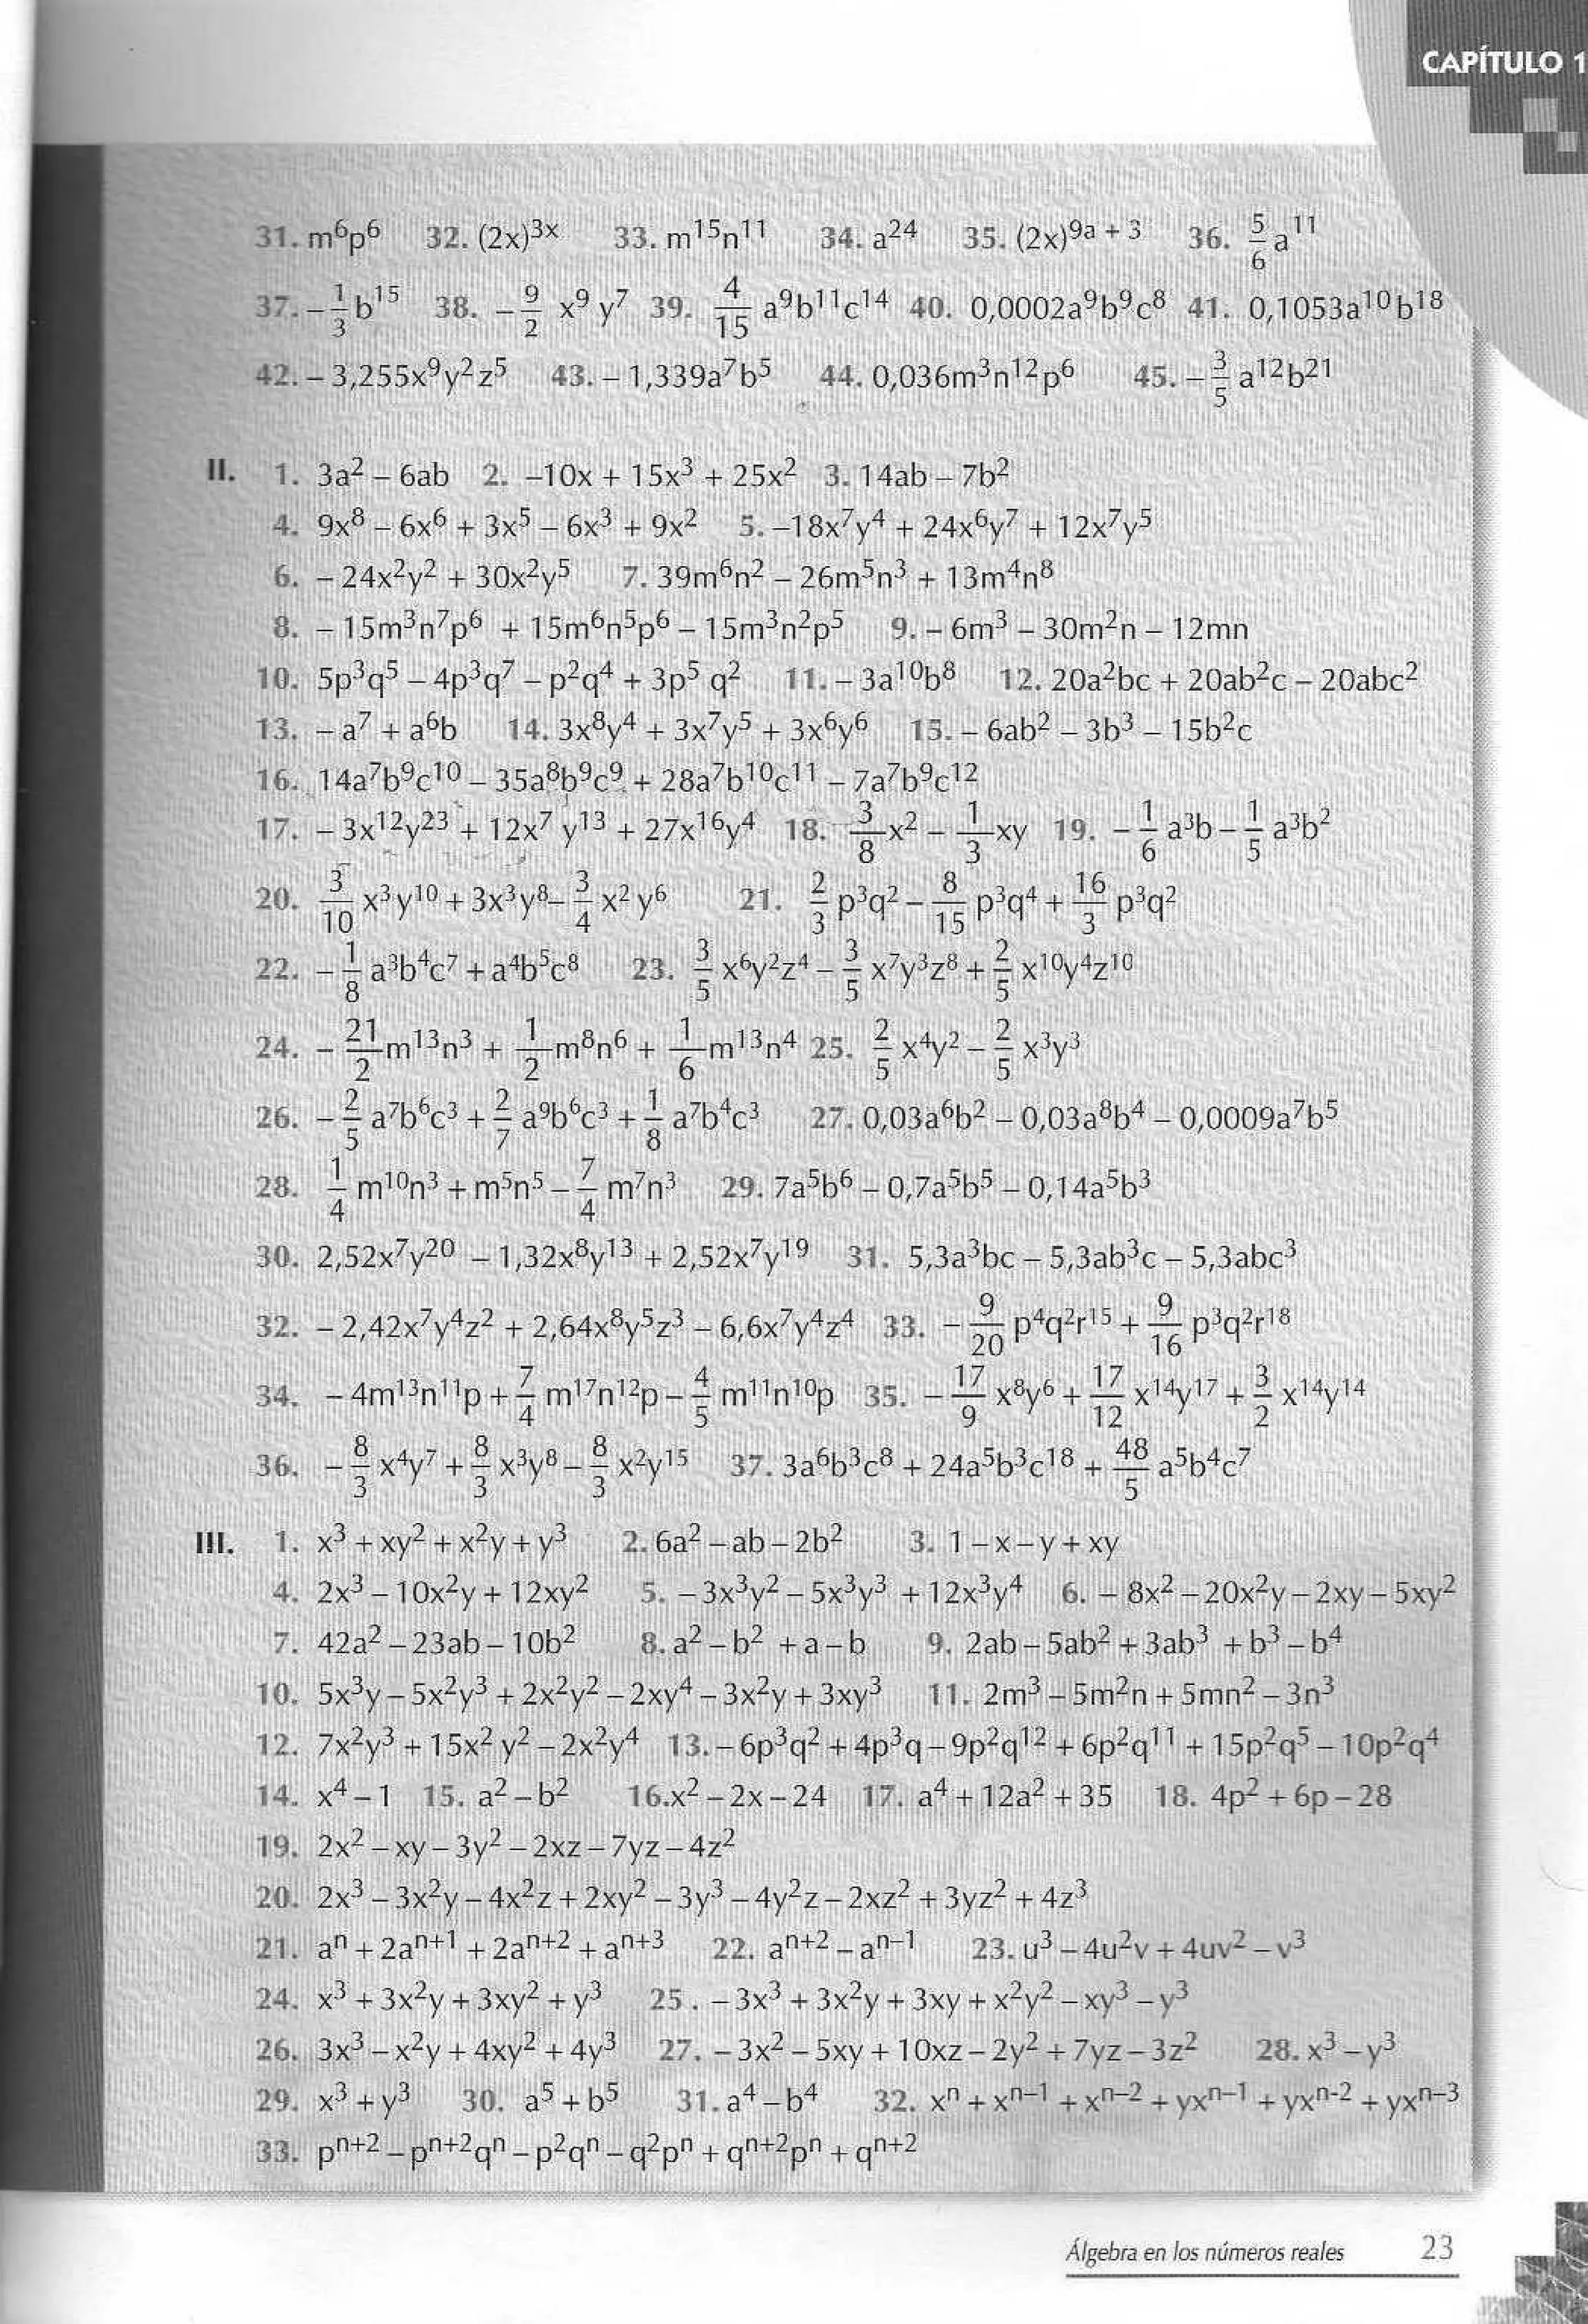 CAPÍTULO 1
31. m⁶p⁶ 32. (2x)³ˣ 33. m¹⁵n¹¹ 34. a²⁴ 35. (2x)⁹ᵃ ⁺ ³ 36. 5/6 a¹¹
37. – 1/3 b¹⁵ 38. – 9/2 x⁹ y⁷ 39. 4/15 a⁹b¹¹c¹⁴ 40. 0,0002a⁹b⁹c⁸ 41. 0,1053a¹⁰b¹⁸
42. – 3,255x⁹y²z⁵ 43. – 1,339a⁷b⁵ 44. 0,036m³n¹²p⁶ 45. – 3/5 a¹²b²¹
II. 1. 3a² – 6ab 2. –10x + 15x³ + 25x² 3. 14ab – 7b²
4. 9x⁸ – 6x⁶ + 3x⁵ – 6x³ + 9x² 5. –18x⁷y⁴ + 24x⁶y⁷ + 12x⁷y⁵
6. – 24x²y² + 30x²y⁵ 7. 39m⁶n² – 26m⁵n³ + 13m⁴n⁸
8. – 15m³n⁷p⁶ + 15m⁶n⁵p⁶ – 15m³n²p⁵ 9. – 6m³ – 30m²n – 12mn
10. 5p³q⁵ – 4p³q⁷ – p²q⁴ + 3p⁵ q² 11. – 3a¹⁰b⁸ 12. 20a²bc + 20ab²c – 20abc²
13. – a⁷ + a⁶b 14. 3x⁸y⁴ + 3x⁷y⁵ + 3x⁶y⁶ 15. – 6ab² – 3b³ – 15b²c
16. 14a⁷b⁹c¹⁰ – 35a⁸b⁹c⁹ + 28a⁷b¹⁰c¹¹ – 7a⁷b⁹c¹²
17. – 3x¹²y²³ + 12x⁷ y¹³ + 27x¹⁶y⁴ 18. 3/8 x² – 1/3 xy 19. – 1/6 a³b – 1/5 a³b²
20. 3/10 x³y¹⁰ + 3x³y⁸ – 3/4 x² y⁶ 21. 2/3 p³q² – 8/15 p³q⁴ + 16/3 p³q²
22. – 1/8 a³b⁴c⁷ + a⁴b⁵c⁸ 23. 3/5 x⁶y²z⁴ – 3/5 x⁷y³z⁸ + 2/5 x¹⁰y⁴z¹⁰
24. – 21/2 m¹³n³ + 1/2 m⁸n⁶ + 1/6 m¹³n⁴ 25. 2/5 x⁴y² – 2/5 x³y³
26. – 2/5 a⁷b⁶c³ + 2/7 a⁹b⁶c³ + 1/8 a⁷b⁴c³ 27. 0,03a⁶b² – 0,03a⁸b⁴ – 0,0009a⁷b⁵
28. 1/4 m¹⁰n³ + m⁵n⁵ – 7/4 m⁷n³ 29. 7a⁵b⁶ – 0,7a⁵b⁵ – 0,14a⁵b³
30. 2,52x⁷y²⁰ – 1,32x⁸y¹³ + 2,52x⁷y¹⁹ 31. 5,3a³bc – 5,3ab³c – 5,3abc³
32. – 2,42x⁷y⁴z² + 2,64x⁸y⁵z³ – 6,6x⁷y⁴z⁴ 33. – 9/20 p⁴q²r¹⁵ + 9/16 p³q²r¹⁸
34. – 4m¹³n¹¹p + 7/4 m¹⁷n¹²p – 4/5 m¹¹n¹⁰p 35. – 17/9 x⁸y⁶ + 17/12 x¹⁴y¹⁷ + 3/2 x¹⁴y¹⁴
36. – 8/3 x⁴y⁷ + 8/3 x³y⁸ – 8/3 x²y¹⁵ 37. 3a⁶b³c⁸ + 24a⁵b³c¹⁸ + 48/5 a⁵b⁴c⁷
III. 1. x³ + xy² + x²y + y³ 2. 6a² – ab – 2b² 3. 1 – x – y + xy
4. 2x³ – 10x²y + 12xy² 5. – 3x³y² – 5x³y³ + 12x³y⁴ 6. – 8x² – 20x²y – 2xy – 5xy²
7. 42a² – 23ab – 10b² 8. a² – b² + a – b 9. 2ab – 5ab² + 3ab³ + b³ – b⁴
10. 5x³y – 5x²y³ + 2x²y² – 2xy⁴ – 3x²y + 3xy³ 11. 2m³ – 5m²n + 5mn² – 3n³
12. 7x²y³ + 15x² y² – 2x²y⁴ 13. – 6p³q² + 4p³q – 9p²q¹² + 6p²q¹¹ + 15p²q⁵ – 10p²q⁴
14. x⁴ – 1 15. a² – b² 16. x² – 2x – 24 17. a⁴ + 12a² + 35 18. 4p² + 6p – 28
19. 2x² – xy – 3y² – 2xz – 7yz – 4z²
20. 2x³ – 3x²y – 4x²z + 2xy² – 3y³ – 4y²z – 2xz² + 3yz² + 4z³
21. aⁿ + 2aⁿ⁺¹ + 2aⁿ⁺² + aⁿ⁺³ 22. aⁿ⁺² – aⁿ⁻¹ 23. u³ – 4u²v + 4uv² – v³
24. x³ + 3x²y + 3xy² + y³ 25 . – 3x³ + 3x²y + 3xy + x²y² – xy³ – y³
26. 3x³ – x²y + 4xy² + 4y³ 27. – 3x² – 5xy + 10xz – 2y² + 7yz – 3z² 28. x³ – y³
29. x³ + y³ 30. a⁵ + b⁵ 31. a⁴ – b⁴ 32. xⁿ + xⁿ⁻¹ + xⁿ⁻² + yxⁿ⁻¹ + yxⁿ⁻² + yxⁿ⁻³
33. pⁿ⁺² – pⁿ⁺²qⁿ – p²qⁿ – q²pⁿ + qⁿ⁺²pⁿ + qⁿ⁺²
Álgebra en los números reales 23